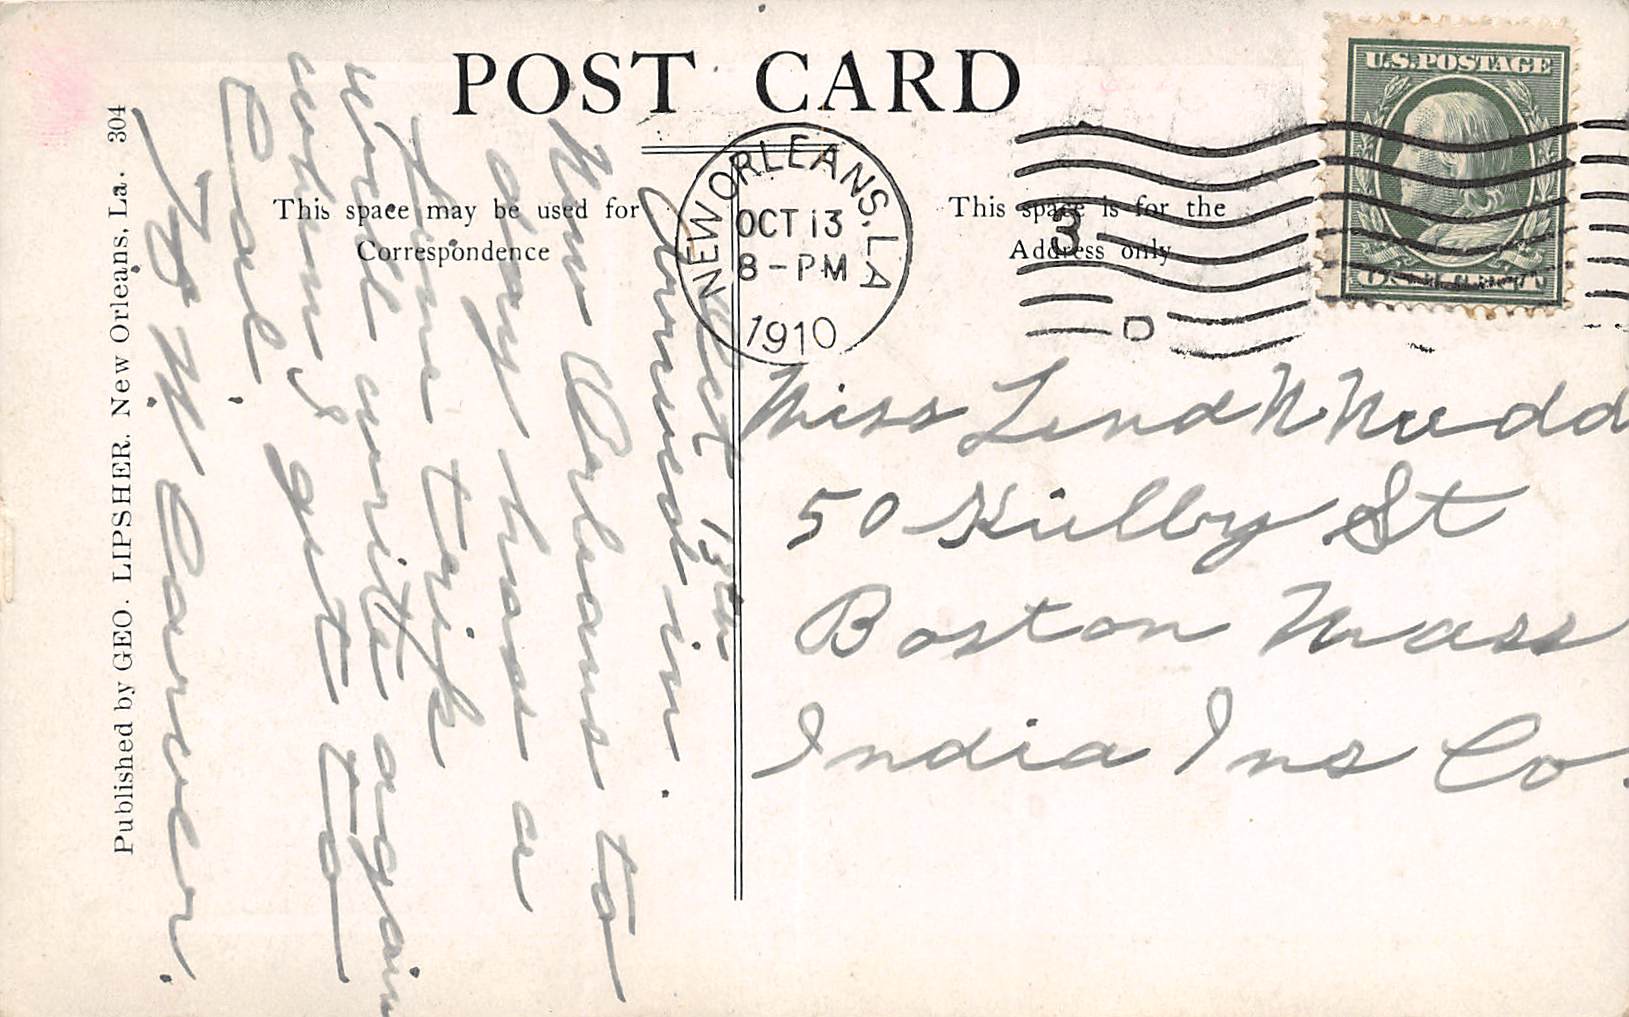 POST CARD
This space may be used for
Correspondence
This space is for the
Address only
NEW ORLEANS, LA
OCT 13
8-PM
1910
3
D
U.S. POSTAGE
Published by GEO. LIPSHER. New Orleans, La. 304
Oct 13th
Arrived in
New Orleans to
day has a
fine trip
will write again
when I get to
Cal.
Carver.
Miss Lend N Nudd
50 Kilby St
Boston Mass
India Ins Co.